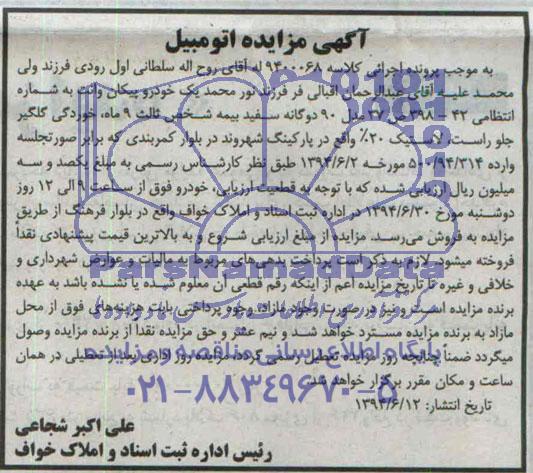 آگهی مزایده اتومبیل
به موجب پرونده اجرائی کلاسه ۹۴۰۰۰۶۸ له آقای روح اله سلطانی اول رودی فرزند ولی
محمد علیه آقای عبدالرحمان اقبالی فر فرزند نور محمد یک خودرو پیکان وانت به شماره
انتظامی ۴۲ – ۳۹۸ ص ۳۷ مدل ۹۰ دوگانه سفید بیمه شخص ثالث ۹ ماه، خوردگی گلگیر
جلو راست، لاستیک ۲۰٪ واقع در پارکینگ شهروند در بلوار کمربندی که برابر صورتجلسه
وارده ۵۰۰/۹۴/۳۱۴ مورخه ۱۳۹۴/۶/۲ طبق نظر کارشناس رسمی به مبلغ یکصد و سه
میلیون ریال ارزیابی شده که با توجه به قطعیت ارزیابی، خودرو فوق از ساعت ۹ الی ۱۲ روز
دوشنبه مورخ ۱۳۹۴/۶/۳۰ در اداره ثبت اسناد و املاک خواف واقع در بلوار فرهنگ از طریق
مزایده به فروش می‌رسد. مزایده از مبلغ ارزیابی شروع و به بالاترین قیمت پیشنهادی نقدا
فروخته میشود. لازم به ذکر است پرداخت بدهی‌های مربوط به مالیات و عوارض شهرداری و
خلافی و غیره تا تاریخ مزایده اعم از اینکه رقم قطعی آن معلوم شده یا نشده باشد به عهده
برنده مزایده است و نیز در صورت وجود مازاد، وجوه پرداختی بابت هزینه‌های فوق از محل
مازاد به برنده مزایده مسترد خواهد شد و نیم عشر و حق مزایده نقدا از برنده مزایده وصول
میگردد ضمناً چنانچه روز مزایده تعطیل رسمی گردد، مزایده روز اداری بعد از تعطیلی در همان
ساعت و مکان مقرر برگزار خواهد شد.
تاریخ انتشار: ۱۳۹۴/۶/۱۲
علی اکبر شجاعی
رئیس اداره ثبت اسناد و املاک خواف
ParsNamadData
پایگاه اطلاع رسانی مناقصه و مزایده
۰۲۱-۸۸۳۴۹۶۷۰-۵